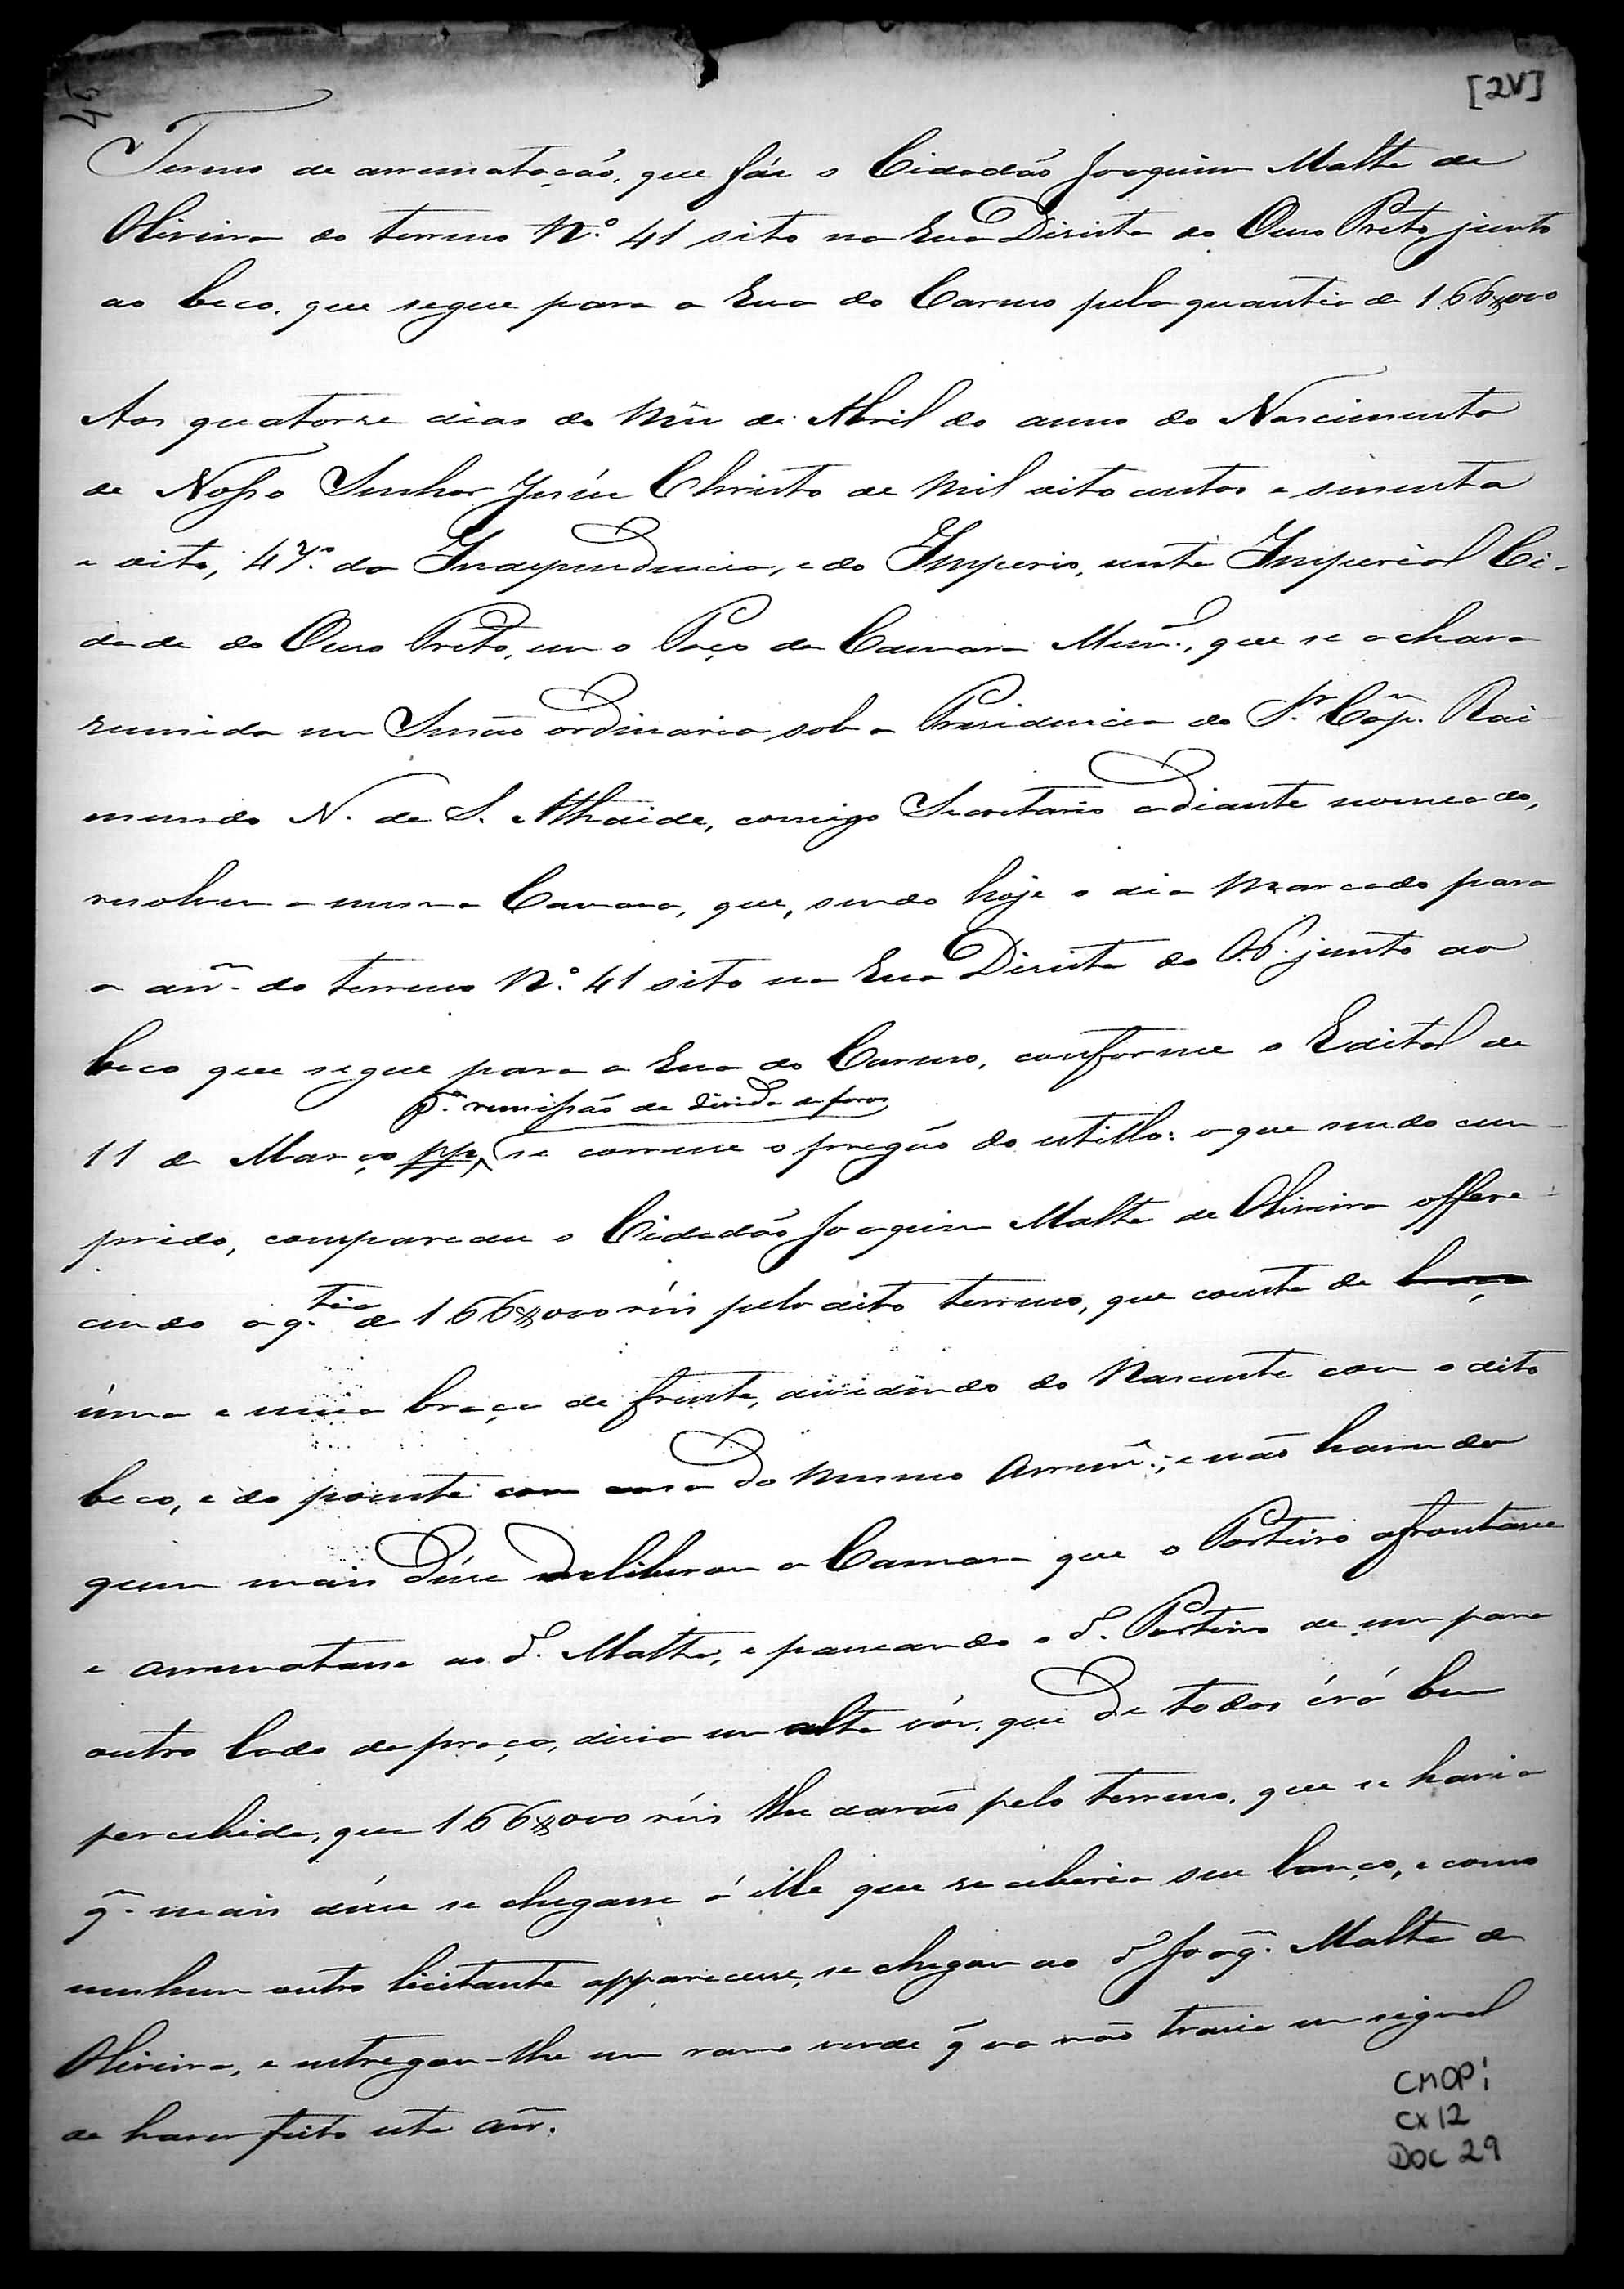 [2V]
42
Termo de arrematação, que fáz o Cidadão Joaquim Malta de
Oliveira do terreno Nº 41 sito na Rua Direita do Ouro Preto, junto
ao beco, que segue para a Rua do Carmo pela quantia de 166$000
Aos quatorze dias do Mez de Abril do anno do Nascimento
de Nosso Senhor Jesús Christo de Mil oito centos e sessenta
e oito, 47º da Independencia, e do Imperio, nesta Imperial Ci-
dade do Ouro Preto, em o Paço da Camara Mun.ᵃˡ, que se achava
reunida em Sessão ordinaria sob a Presidencia do S.ʳ Cap.ᵐ Rai-
mundo N. de S. Athaide, comigo Secretario adiante nomeado,
resolveu a mesma Camara, que, sendo hoje o dia Marcado para
a arr.ᵐ do terreno Nº 41 sito na Rua Direita do O. P. junto ao
beco que segue para a Rua do Carmo, conforme o Edital de
p.ᵃ remissão da divida de foros
11 de Março pp, se corresse o pregão do estillo: o que sendo cum-
prido, compareceu o Cidadão Joaquim Malta de Oliveira offere-
cendo a q.ᵗⁱᵃ de 166$000 réis pelo dito terreno, que consta de braça
úma e meia braça de frente, dividindo do Nascente com o dito
beco, e do poente com casa do Mesmo Arrem.ᵉ; e não havendo
quem mais désse deliberou a Camara que o Porteiro afrontasse
e arrematasse ao d. Malta, e passeando o d. Porteiro de um para
outro lado da praça, dizia em alta vóz, que de todos éra bem
percebida, que 166$000 réis lhe davão pelo terreno, que se havia
q.ᵐ mais désse se chegasse á elle que receberia seu lanço, e como
nenhum outro licitante apparecesse, se chegou ao d. Joaq.ᵐ Malta de
Oliveira, e entregou-lhe um ramo verde q̃ na mão trazia em signal
de haver feito esta arr.ᵐ
CMOP;
CX 12
DOC 29